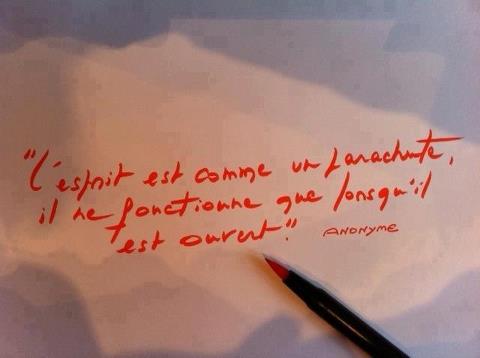 "L'esprit est comme un parachute,
il ne fonctionne que lorsqu'il
est ouvert."
ANONYME